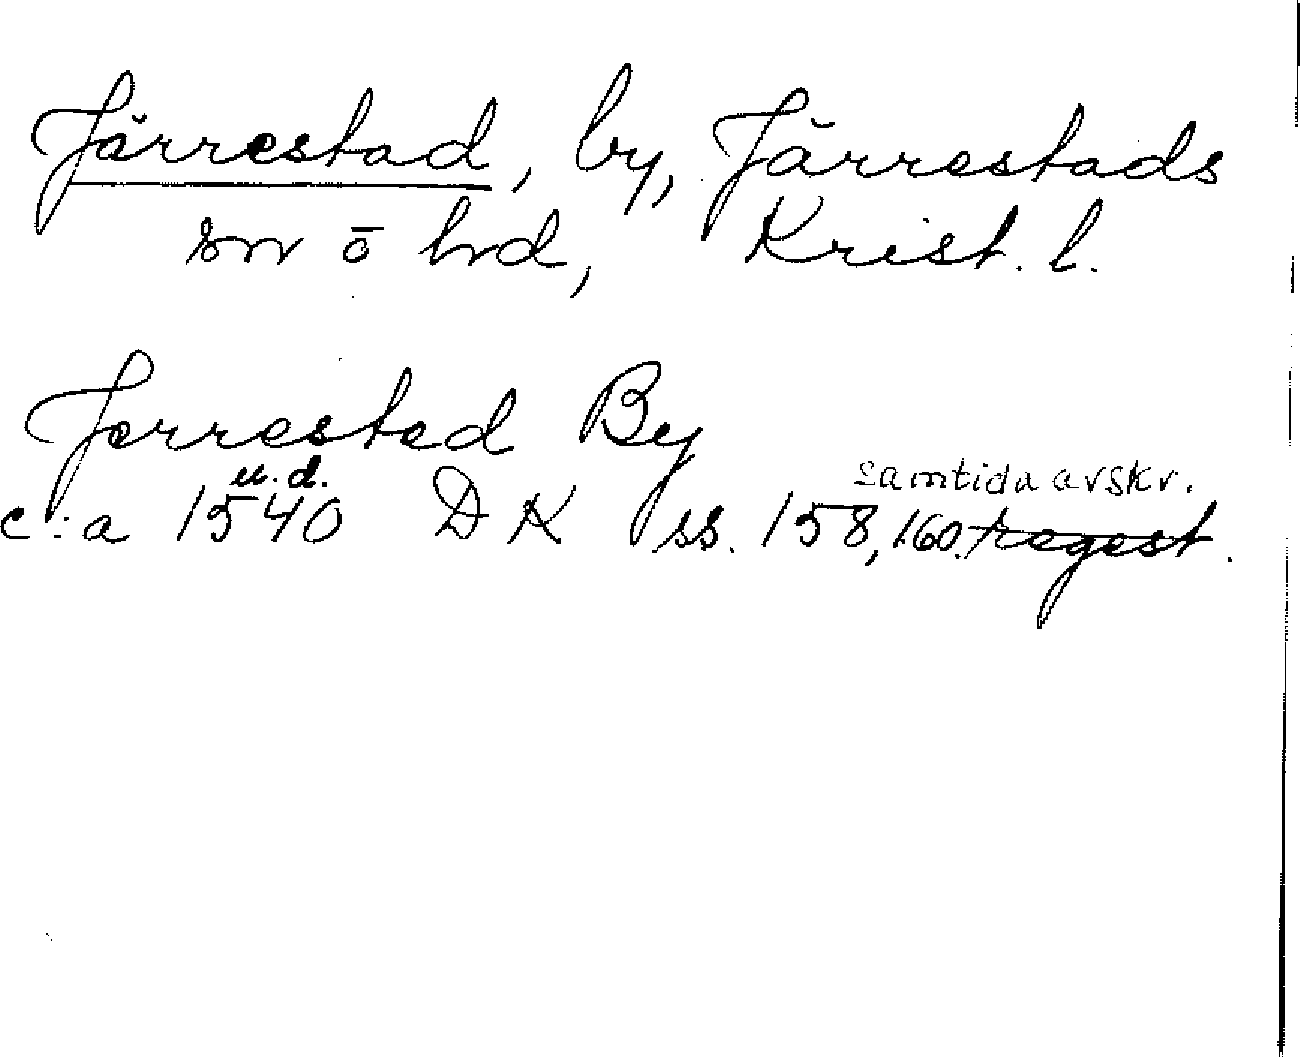 Järrestad, by, Järrestads
sn o hd, Krist. l.
Jerrested By
u.d. samtida avskr.
c:a 1540 DK ss. 158, 160. regest.